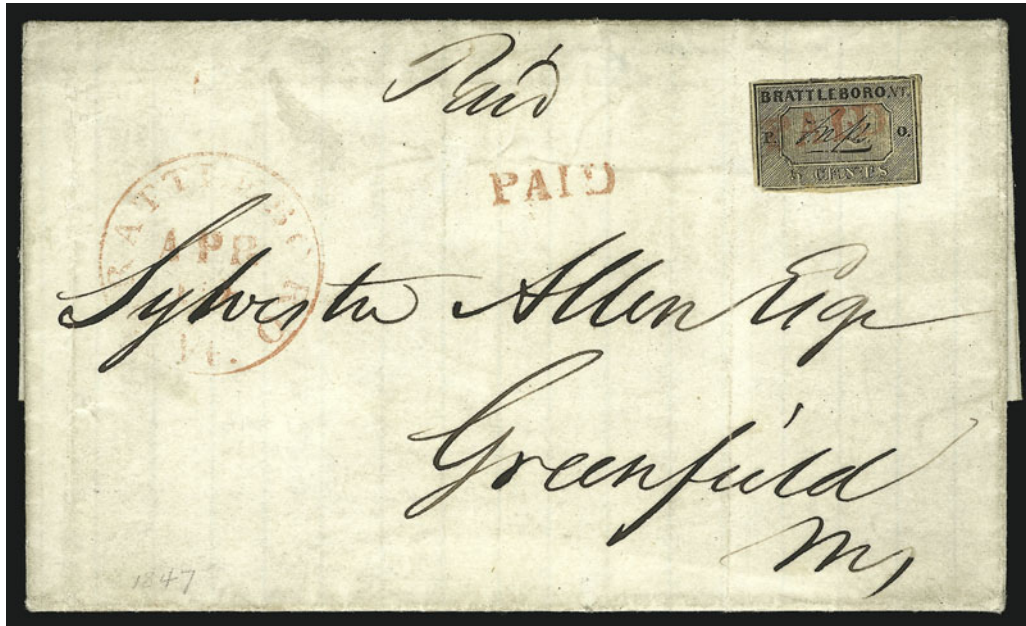 Paid
BRATTLEBORO.VT.
P. PAID O.
5 CENTS
PAID
BRATTLEBORO
APR
Vt.
Sylvester Allen Esqr
Greenfield
Ms,
1847